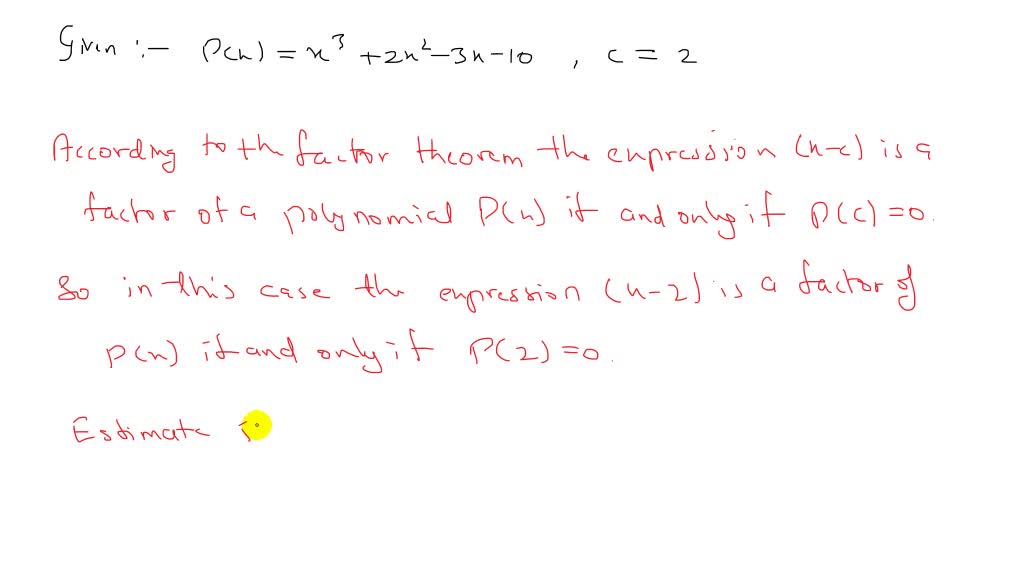 Given :- P(x) = x³ + 2x² - 3x - 10 , c = 2
According to the factor theorem the expression (x-c) is a
factor of a polynomial P(x) if and only if P(c) = 0.
So in this case the expression (x-2) is a factor of
P(x) if and only if P(2) = 0.
Estimate